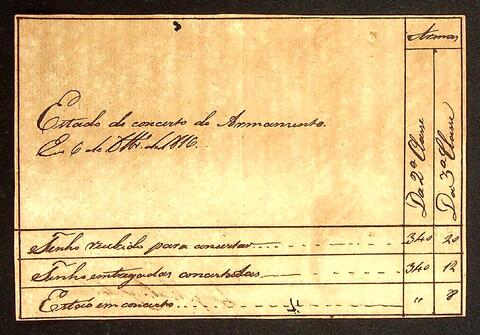 Armas
Da 2ª Classe
Da 3ª Classe
Estado do concerto do Armamento.
Em 6 de de 1816.
Tenho recebido para consertar 340 20
Tenho entregadas concertadas 340 12
Estaõ em concerto " 8